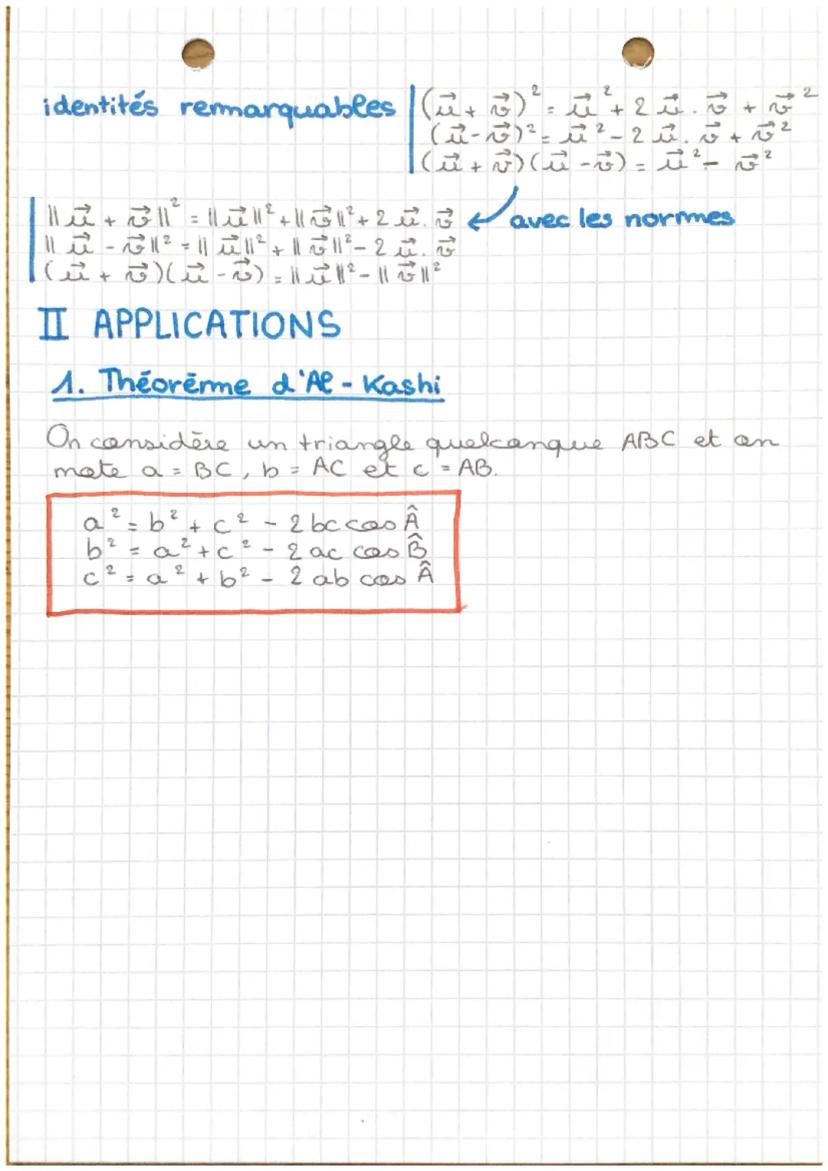 identités remarquables | (u⃗ + v⃗)² = u⃗² + 2 u⃗ . v⃗ + v⃗²
(u⃗ - v⃗)² = u⃗² - 2 u⃗ . v⃗ + v⃗²
(u⃗ + v⃗)(u⃗ - v⃗) = u⃗² - v⃗²
|| u⃗ + v⃗ ||² = || u⃗ ||² + || v⃗ ||² + 2 u⃗ . v⃗ ↙ avec les normes
|| u⃗ - v⃗ ||² = || u⃗ ||² + || v⃗ ||² - 2 u⃗ . v⃗
(u⃗ + v⃗)(u⃗ - v⃗) = || u⃗ ||² - || v⃗ ||²
II APPLICATIONS
1. Théorème d'Al - Kashi
On considère un triangle quelconque ABC et on
note a = BC, b = AC et c = AB.
a² = b² + c² - 2 bc cos Â
b² = a² + c² - 2 ac cos B̂
c² = a² + b² - 2 ab cos Â